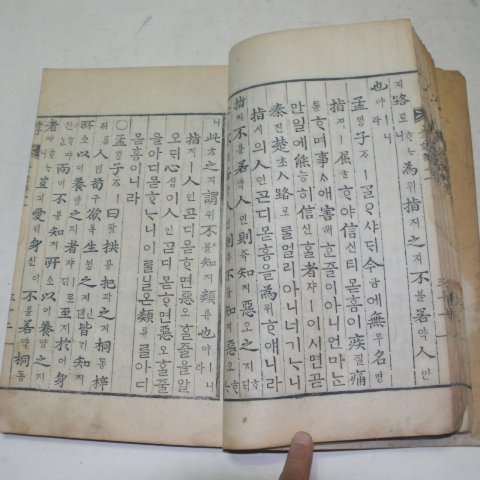 지路로니ᄂᆞᆫ爲위指지之지不불若약人인
也야ㅣ니라
孟ᄆᆡᆼ子ᄌᆞㅣᄀᆞᆯᄋᆞ샤ᄃᆡ今금에無무名명
指지ㅣ屈굴ᄒᆞ야信신티몯홈이疾질痛
통ᄒᆞ며事ᄉᆞ애害해홈이아니언마ᄂᆞᆫ
만일에能능히信신ᄒᆞᆯ者쟈ㅣ이시면곧
秦진楚초人路로ᄅᆞᆯ멀리아니너기ᄂᆞ니
指지의人인ᄀᆞᆮ디몯홈을爲위ᄒᆞ얘니라
指지不불若약人인則즉知지惡오之지
니此ᄎᆞ之지謂위不불知지類류也야ㅣ니라
指지ㅣ人인ᄀᆞᆮ디몯ᄒᆞ면惡오ᄒᆞᆯ줄을알
오ᄃᆡ心심이人인ᄀᆞᆮ디몯ᄒᆞ면惡오ᄒᆞᆯ줄
을아디몯ᄒᆞᄂᆞ니이ᄅᆞᆯ닐온類류ᄅᆞᆯ아디
몯홈이니라
○孟ᄆᆡᆼ子ᄌᆞㅣ曰왈拱공把파之지桐동梓
ᄌᆡᄅᆞᆯ人인이苟구欲욕生ᄉᆡᆼ之지ᄂᆞᆫ댄皆ᄀᆡ知지
所소以이養양之지者쟈ㅣ로ᄃᆡ至지於어身
신ᄒᆞ야ᄂᆞᆫ而이不불知지所소以이養양之지
者쟈ᄒᆞᄂᆞ니豈긔愛ᄋᆡ身신이不불若약桐동